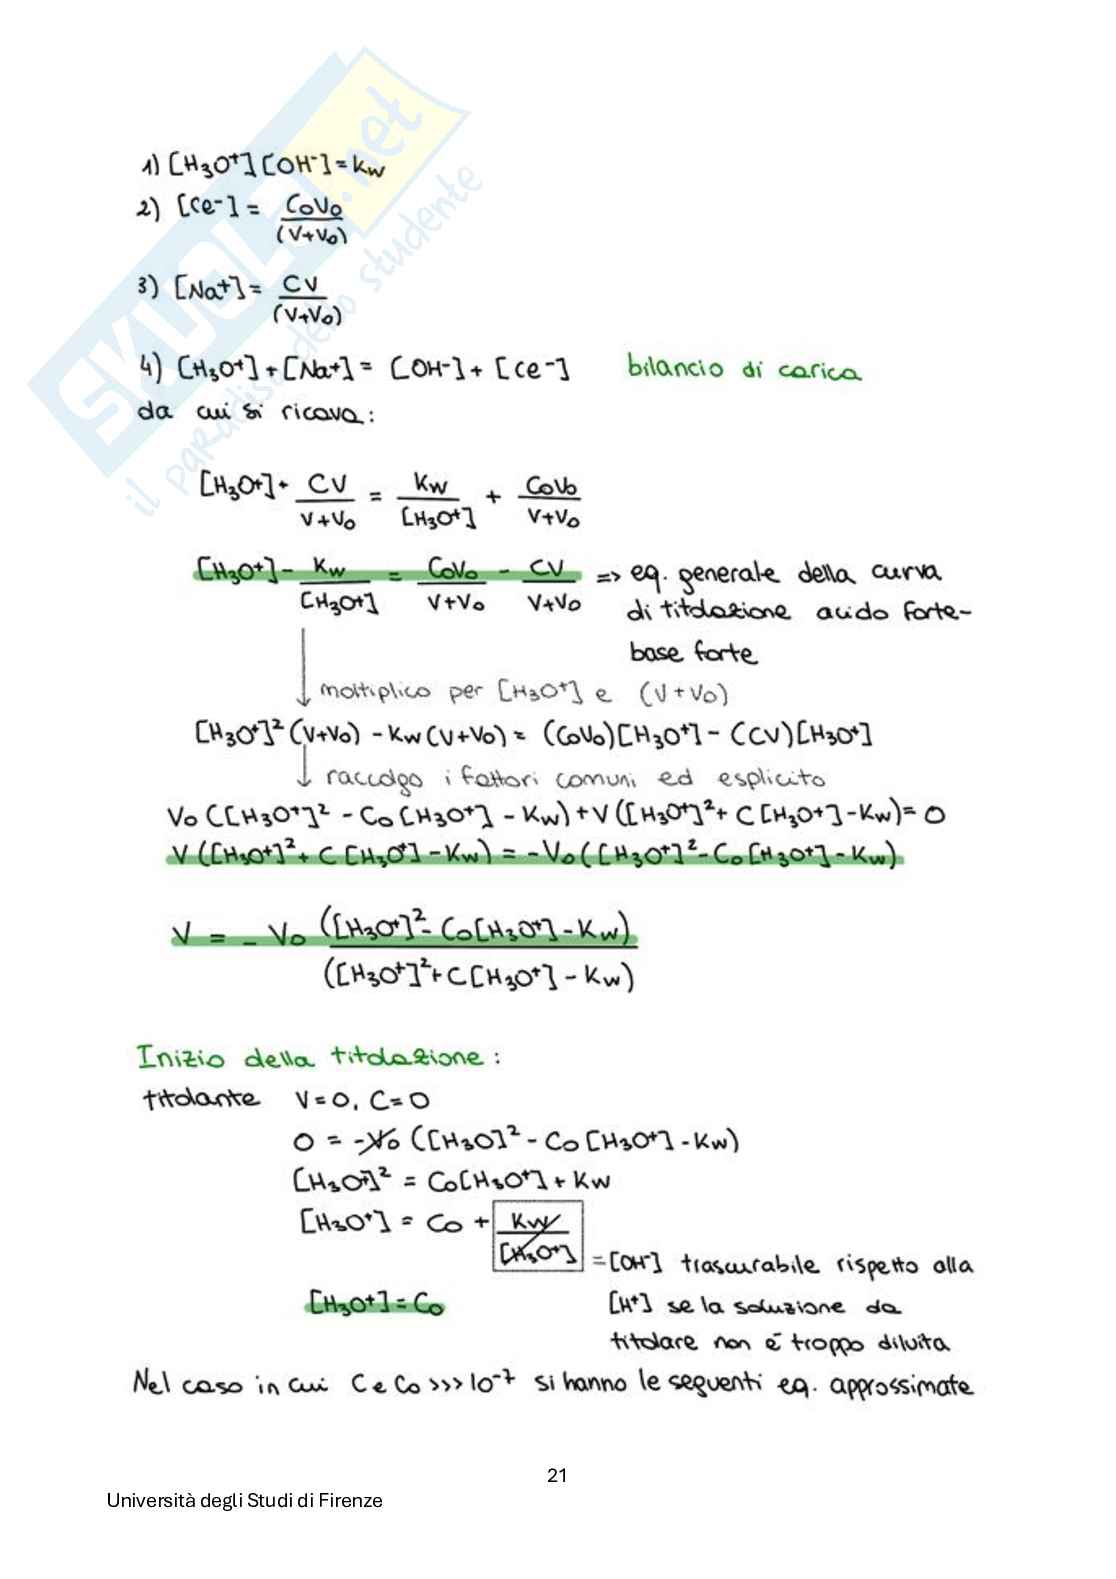 SKUOLA.net
il paradiso dello studente
1) [H₃O⁺][OH⁻] = Kw
2) [Ce⁻] = CoVo / (V+Vo)
3) [Na⁺] = CV / (V+Vo)
4) [H₃O⁺] + [Na⁺] = [OH⁻] + [Ce⁻] bilancio di carica
da cui si ricava:
[H₃O⁺] + CV / V+Vo = Kw / [H₃O⁺] + CoVo / V+Vo
[H₃O⁺] - Kw / [H₃O⁺] = CoVo / V+Vo - CV / V+Vo => eq. generale della curva
di titolazione acido forte-
base forte
moltiplico per [H₃O⁺] e (V+Vo)
[H₃O⁺]² (V+Vo) - Kw (V+Vo) = (CoVo)[H₃O⁺] - (CV)[H₃O⁺]
raccolgo i fattori comuni ed esplicito
Vo ([H₃O⁺]² - Co [H₃O⁺] - Kw) + V ([H₃O⁺]² + C [H₃O⁺] - Kw) = 0
V ([H₃O⁺]² + C [H₃O⁺] - Kw) = - Vo ([H₃O⁺]² - Co [H₃O⁺] - Kw)
V = - Vo ([H₃O⁺]² - Co[H₃O⁺] - Kw) / ([H₃O⁺]² + C[H₃O⁺] - Kw)
Inizio della titolazione :
titolante V=0, C=0
0 = -Vo ([H₃O]² - Co [H₃O⁺] - Kw)
[H₃O⁺]² = Co[H₃O⁺] + Kw
[H₃O⁺] = Co + Kw / [H₃O⁺] = [OH⁻] trascurabile rispetto alla
[H₃O⁺] = Co [H⁺] se la soluzione da
titolare non è troppo diluita
Nel caso in cui C e Co >>> 10⁻⁷ si hanno le seguenti eq. approssimate
21
Università degli Studi di Firenze